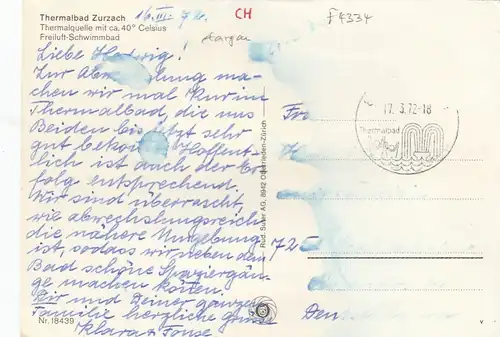 Thermalbad Zurzach
Thermalquelle mit ca. 40° Celsius
Freiluft-Schwimmbad
16. III. 72.
CH
Aargau
F4334
Liebe Hedwig!
Zur Abwechslung ma-
chen wir mal Kur im
Thermalbad, die uns
Beiden bis jetzt sehr
gut bekommt. Hoffent-
lich ist auch der Er-
folg entsprechend.
Wir sind überrascht,
wie abwechslungsreich
die nähere Umgebung
ist, sodass wir neben dem
Bad schöne Spaziergän-
ge machen können.
Dir und Deiner ganzen
Familie herzliche Grüsse
Klara + 
Nr. 18439
Rud. Suter AG, 8942 Oberrieden-Zürich
17. 3. 72-18
Thermalbad
Fr
725
Den
v